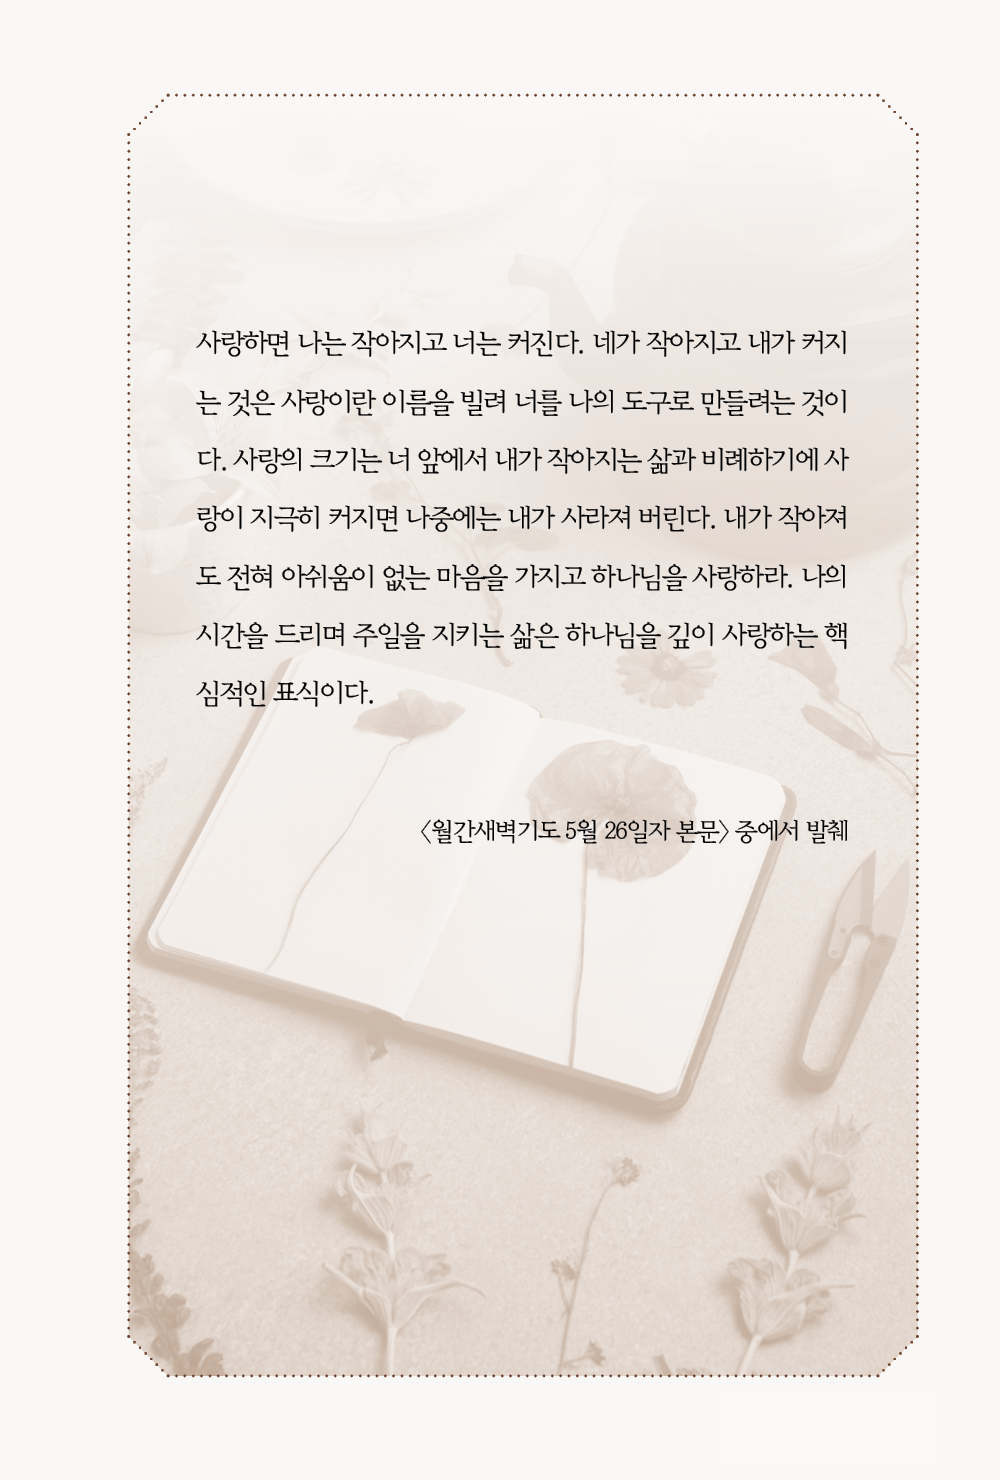 사랑하면 나는 작아지고 너는 커진다. 네가 작아지고 내가 커지
는 것은 사랑이란 이름을 빌려 너를 나의 도구로 만들려는 것이
다. 사랑의 크기는 너 앞에서 내가 작아지는 삶과 비례하기에 사
랑이 지극히 커지면 나중에는 내가 사라져 버린다. 내가 작아져
도 전혀 아쉬움이 없는 마음을 가지고 하나님을 사랑하라. 나의
시간을 드리며 주일을 지키는 삶은 하나님을 깊이 사랑하는 핵
심적인 표식이다.
〈월간새벽기도 5월 26일자 본문〉 중에서 발췌